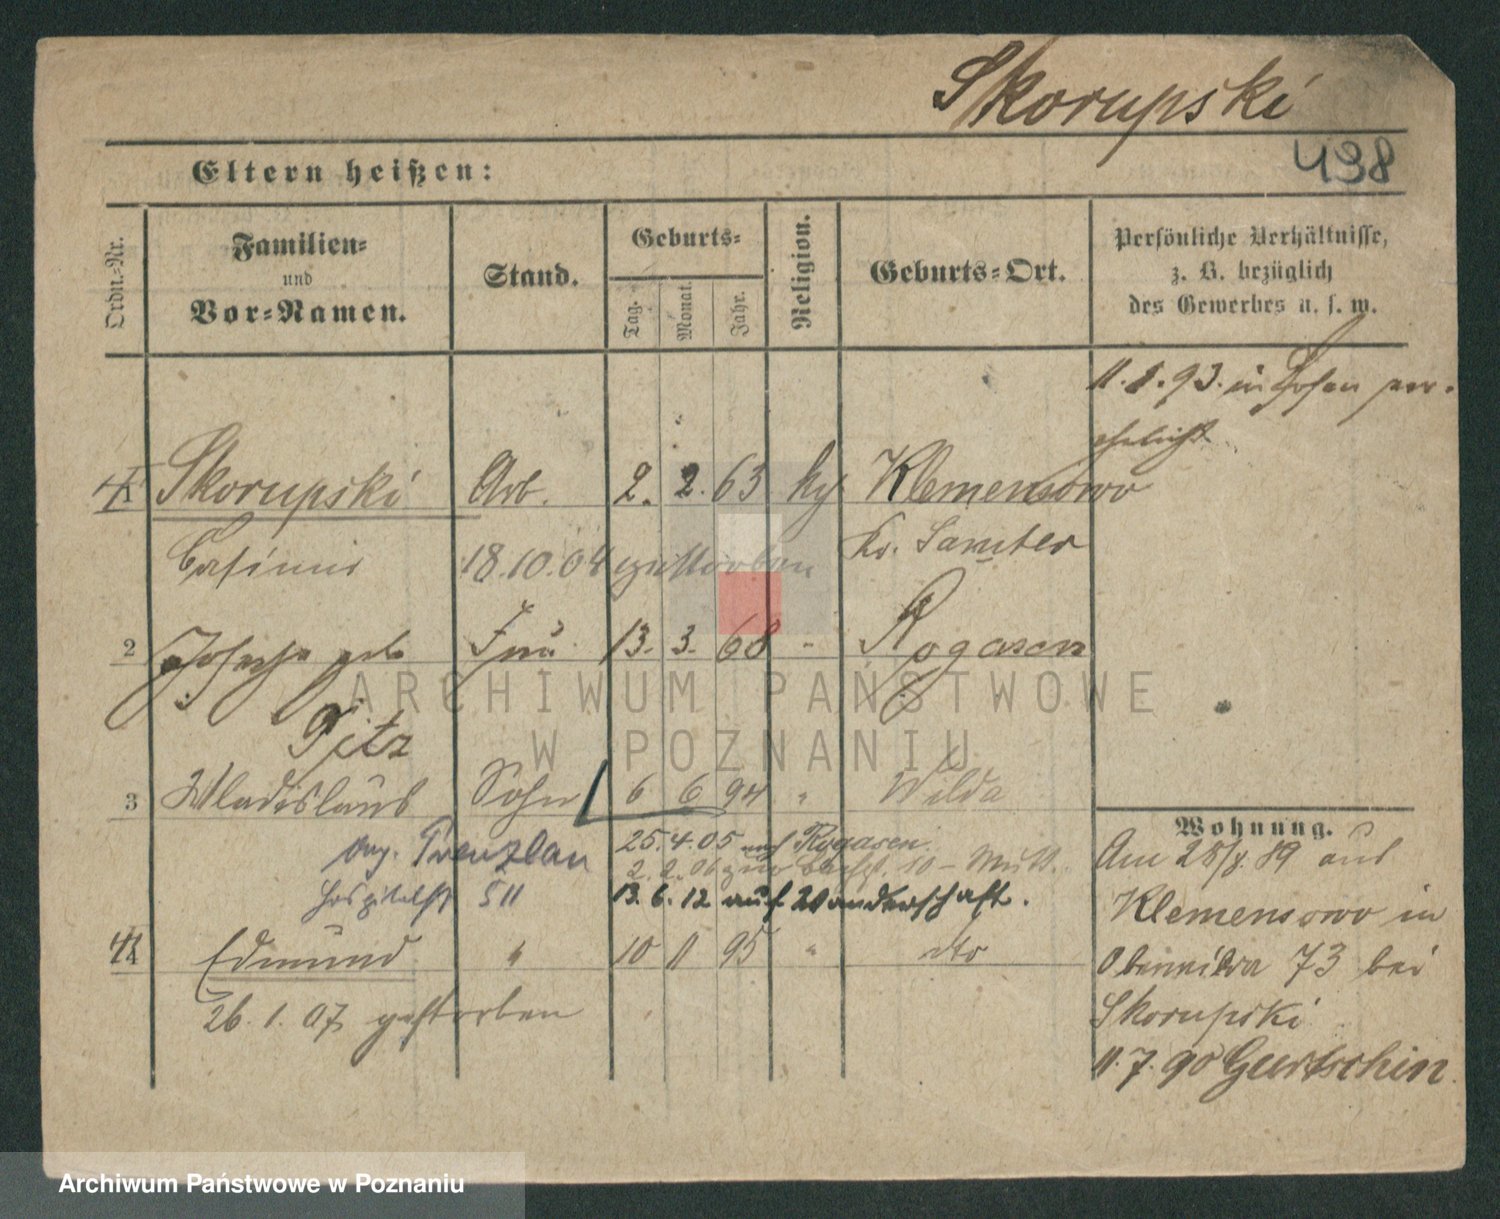 Skorupski
498
Eltern heißen:
Ordn.-Nr.
Familien-
und
Vor-Namen.
Stand.
Geburts-
Tag.
Monat.
Jahr.
Religion.
Geburts-Ort.
Persönliche Verhältnisse,
z. B. bezüglich
des Gewerbes u. s. w.
11. 1. 93. in Posen ver-
ehelicht
1 Skorupski Arb. 2. 2. 63 Klemensowo
Casimir 18.10.04 gestorben Kr. Samter
2 Josepha geb. Frau 13. 3. 68 " Rogasen
Titz
3 Wladislaus Sohn 6 6 94 " Wilda
Prenzlau 25.4.05 nach Rogasen
2.2.06
511 13.6.12 auf Wanderschaft.
4 Edmund " 10 11 95 " dto
26.1.07 gestorben
Wohnung.
Am 28/8. 89 aus
Klemensowo in
73 bei
Skorupski
11.7.90 Gurtschin
ARCHIWUM PAŃSTWOWE
W POZNANIU
Archiwum Państwowe w Poznaniu